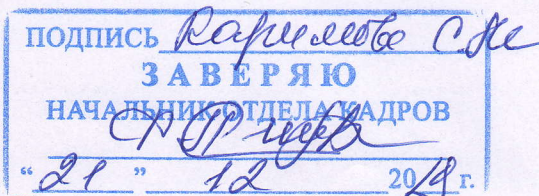 ПОДПИСЬ Каримова С.Н
ЗАВЕРЯЮ
НАЧАЛЬНИК ОТДЕЛА КАДРОВ
“ 21 ” 12 2019 г.